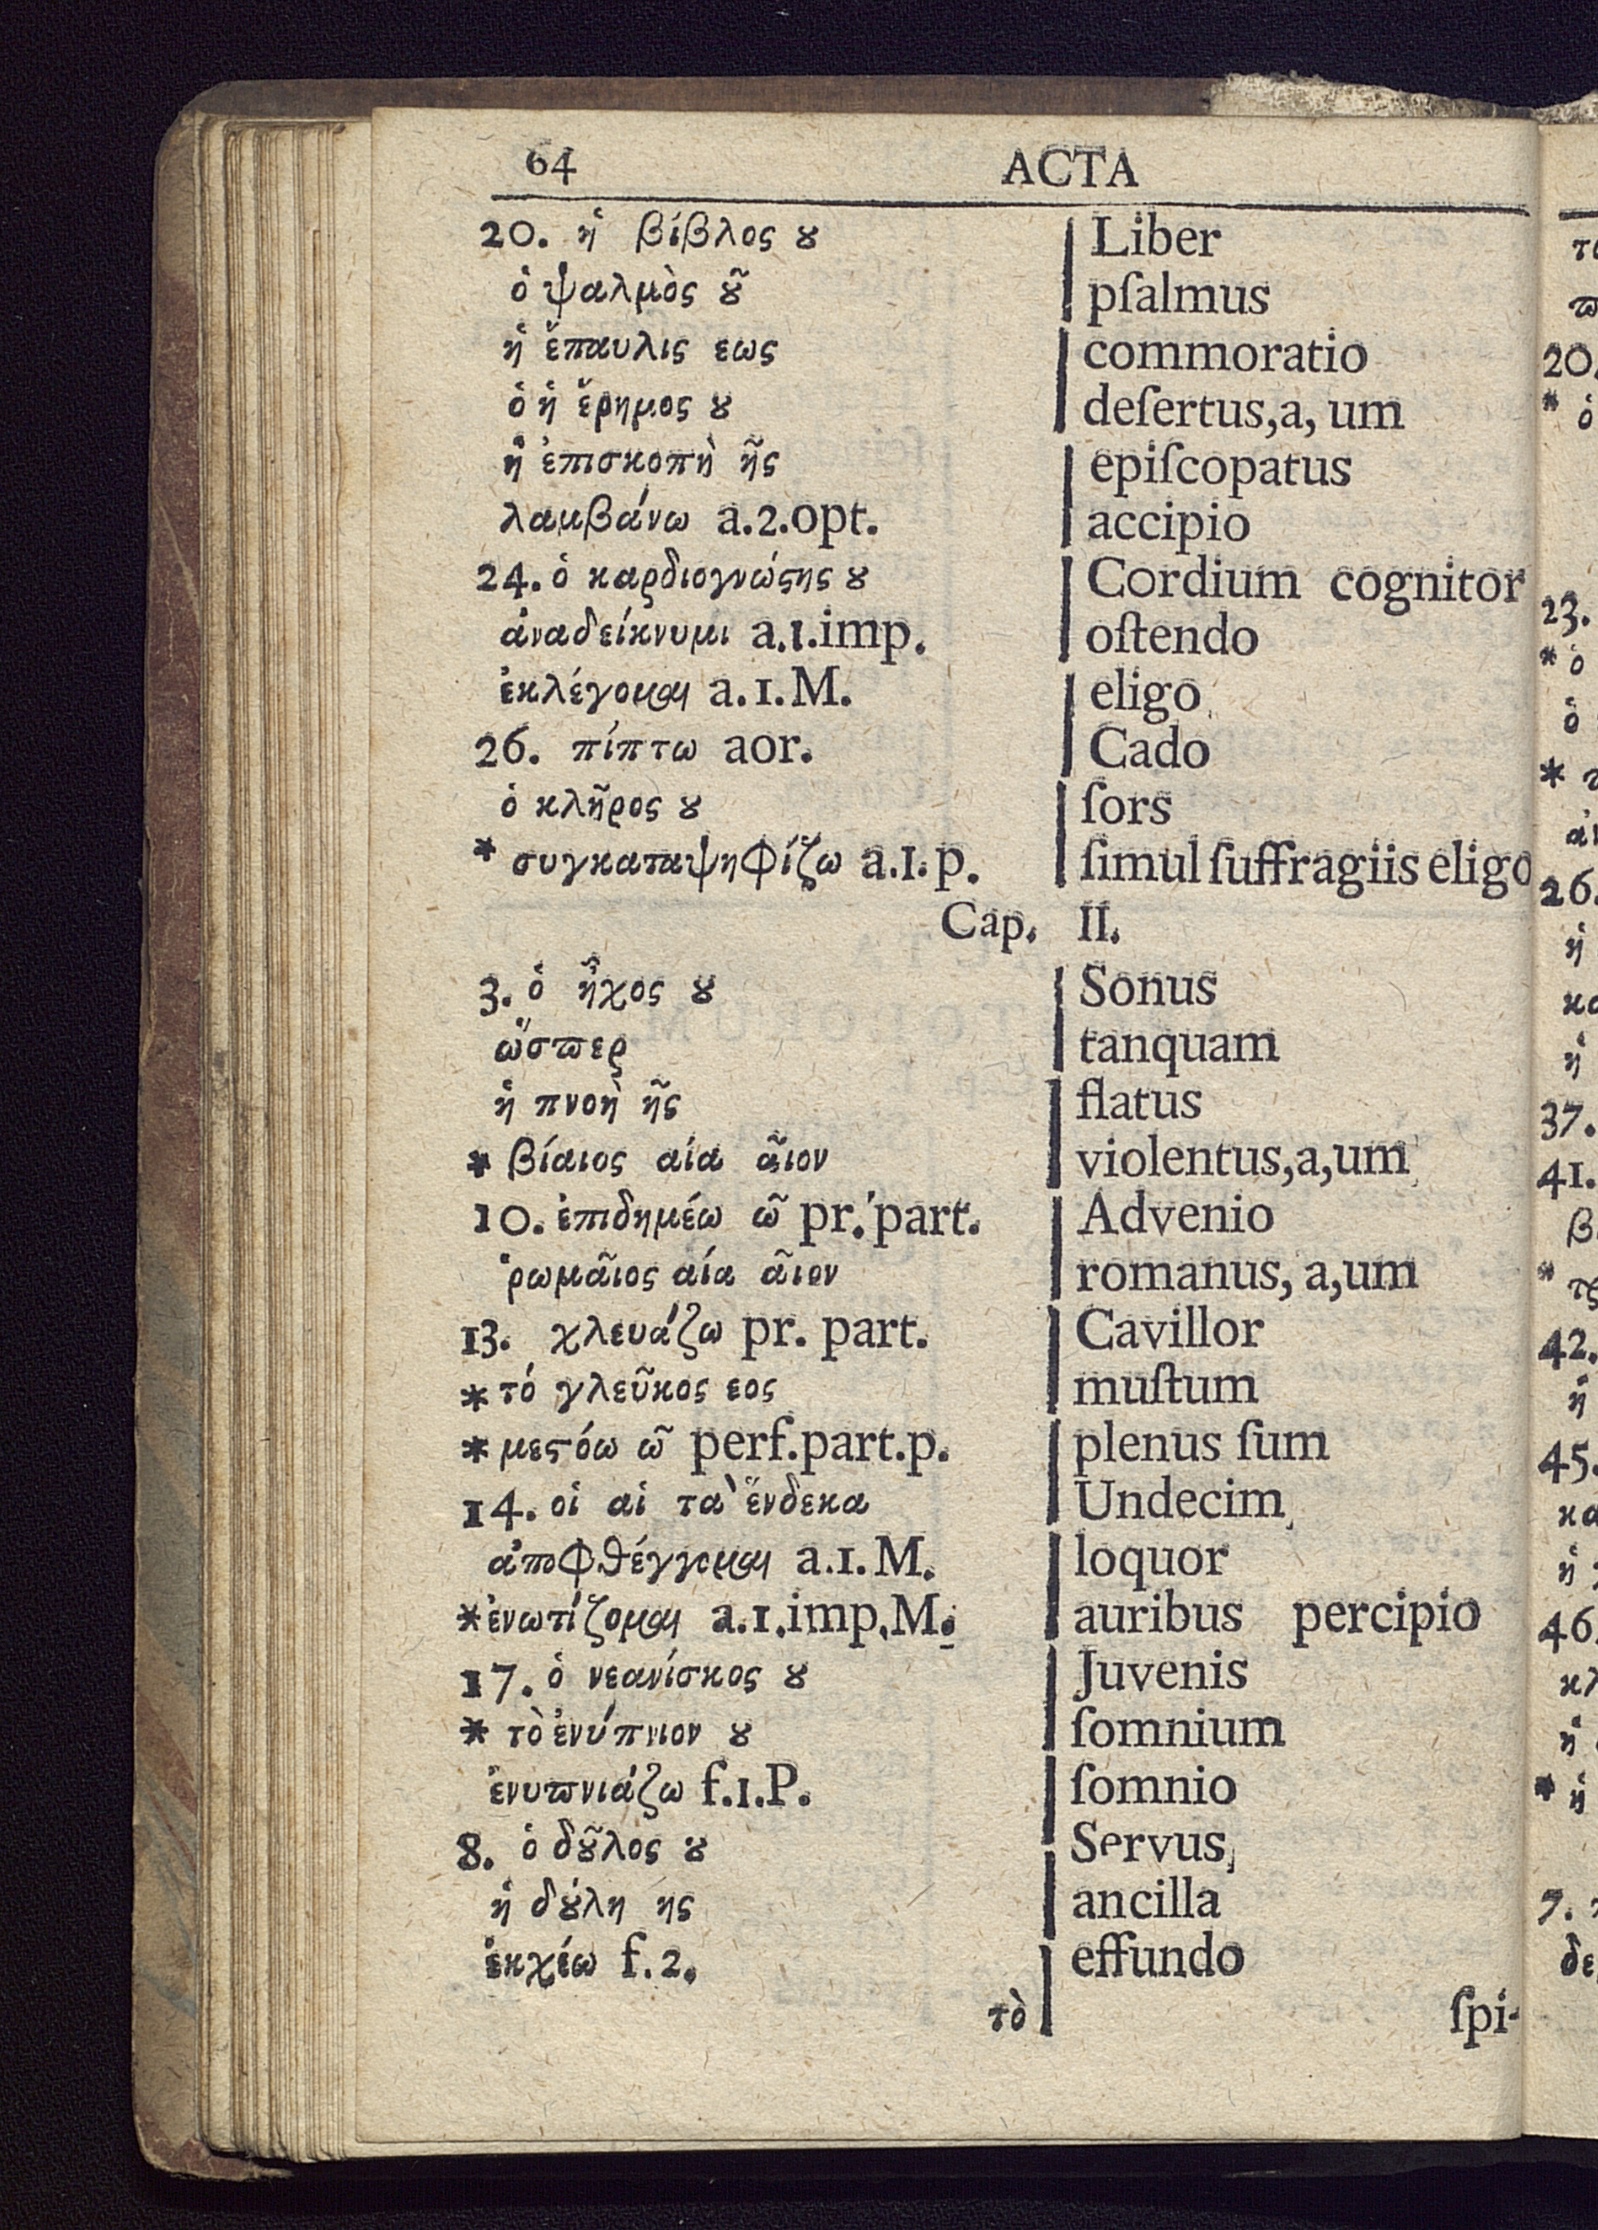 64 ACTA
20. ἡ βίβλος ȣ | Liber
ὁ ψαλμὸς ȣ͂ | pſalmus
ἡ ἔπαυλις εως | commoratio
ὁ ἡ ἔρημος ȣ | deſertus,a, um
ἡ ἐπισκοπὴ ῆς | epiſcopatus
λαμβάνω a.2.opt. | accipio
24. ὁ καρδιογνώϛης ȣ | Cordium cognitor
ἀναδείκνυμι a.1.imp. | oſtendo
ἐκλέγομαι a.1.M. | eligo
26. πίπτω aor. | Cado
ὁ κλῆρος ȣ | ſors
* συγκαταψηφίζω a.1.p. | ſimul ſuffragiis eligo
Cap. II.
3. ὁ ἦχος ȣ | Sonus
ὥσϖερ | tanquam
ἡ πνοὴ ῆς | flatus
* βίαιος αία ᾶιον | violentus,a,um
10. ἐπιδημέω ῶ pr. part. | Advenio
ῥωμᾶιος αία ᾶιον | romanus, a,um
13. χλευάζω pr. part. | Cavillor
* τό γλεῦκος εος | muſtum
* μεϛόω ῶ perf.part.p. | plenus ſum
14. οἱ αἱ τὰ ἕνδεκα | Undecim
ἀποφθέγγομαι a.1.M. | loquor
* ἐνωτίζομαι a.1.imp.M. | auribus percipio
17. ὁ νεανίσκος ȣ | Juvenis
* τὸ ἐνύπνιον ȣ | ſomnium
ἐνυϖνιάζω f.1.P. | ſomnio
8. ὁ δȣ͂λος ȣ | Servus
ἡ δȣ́λη ης | ancilla
ἐκχέω f.2. | effundo
τὸ | ſpi-